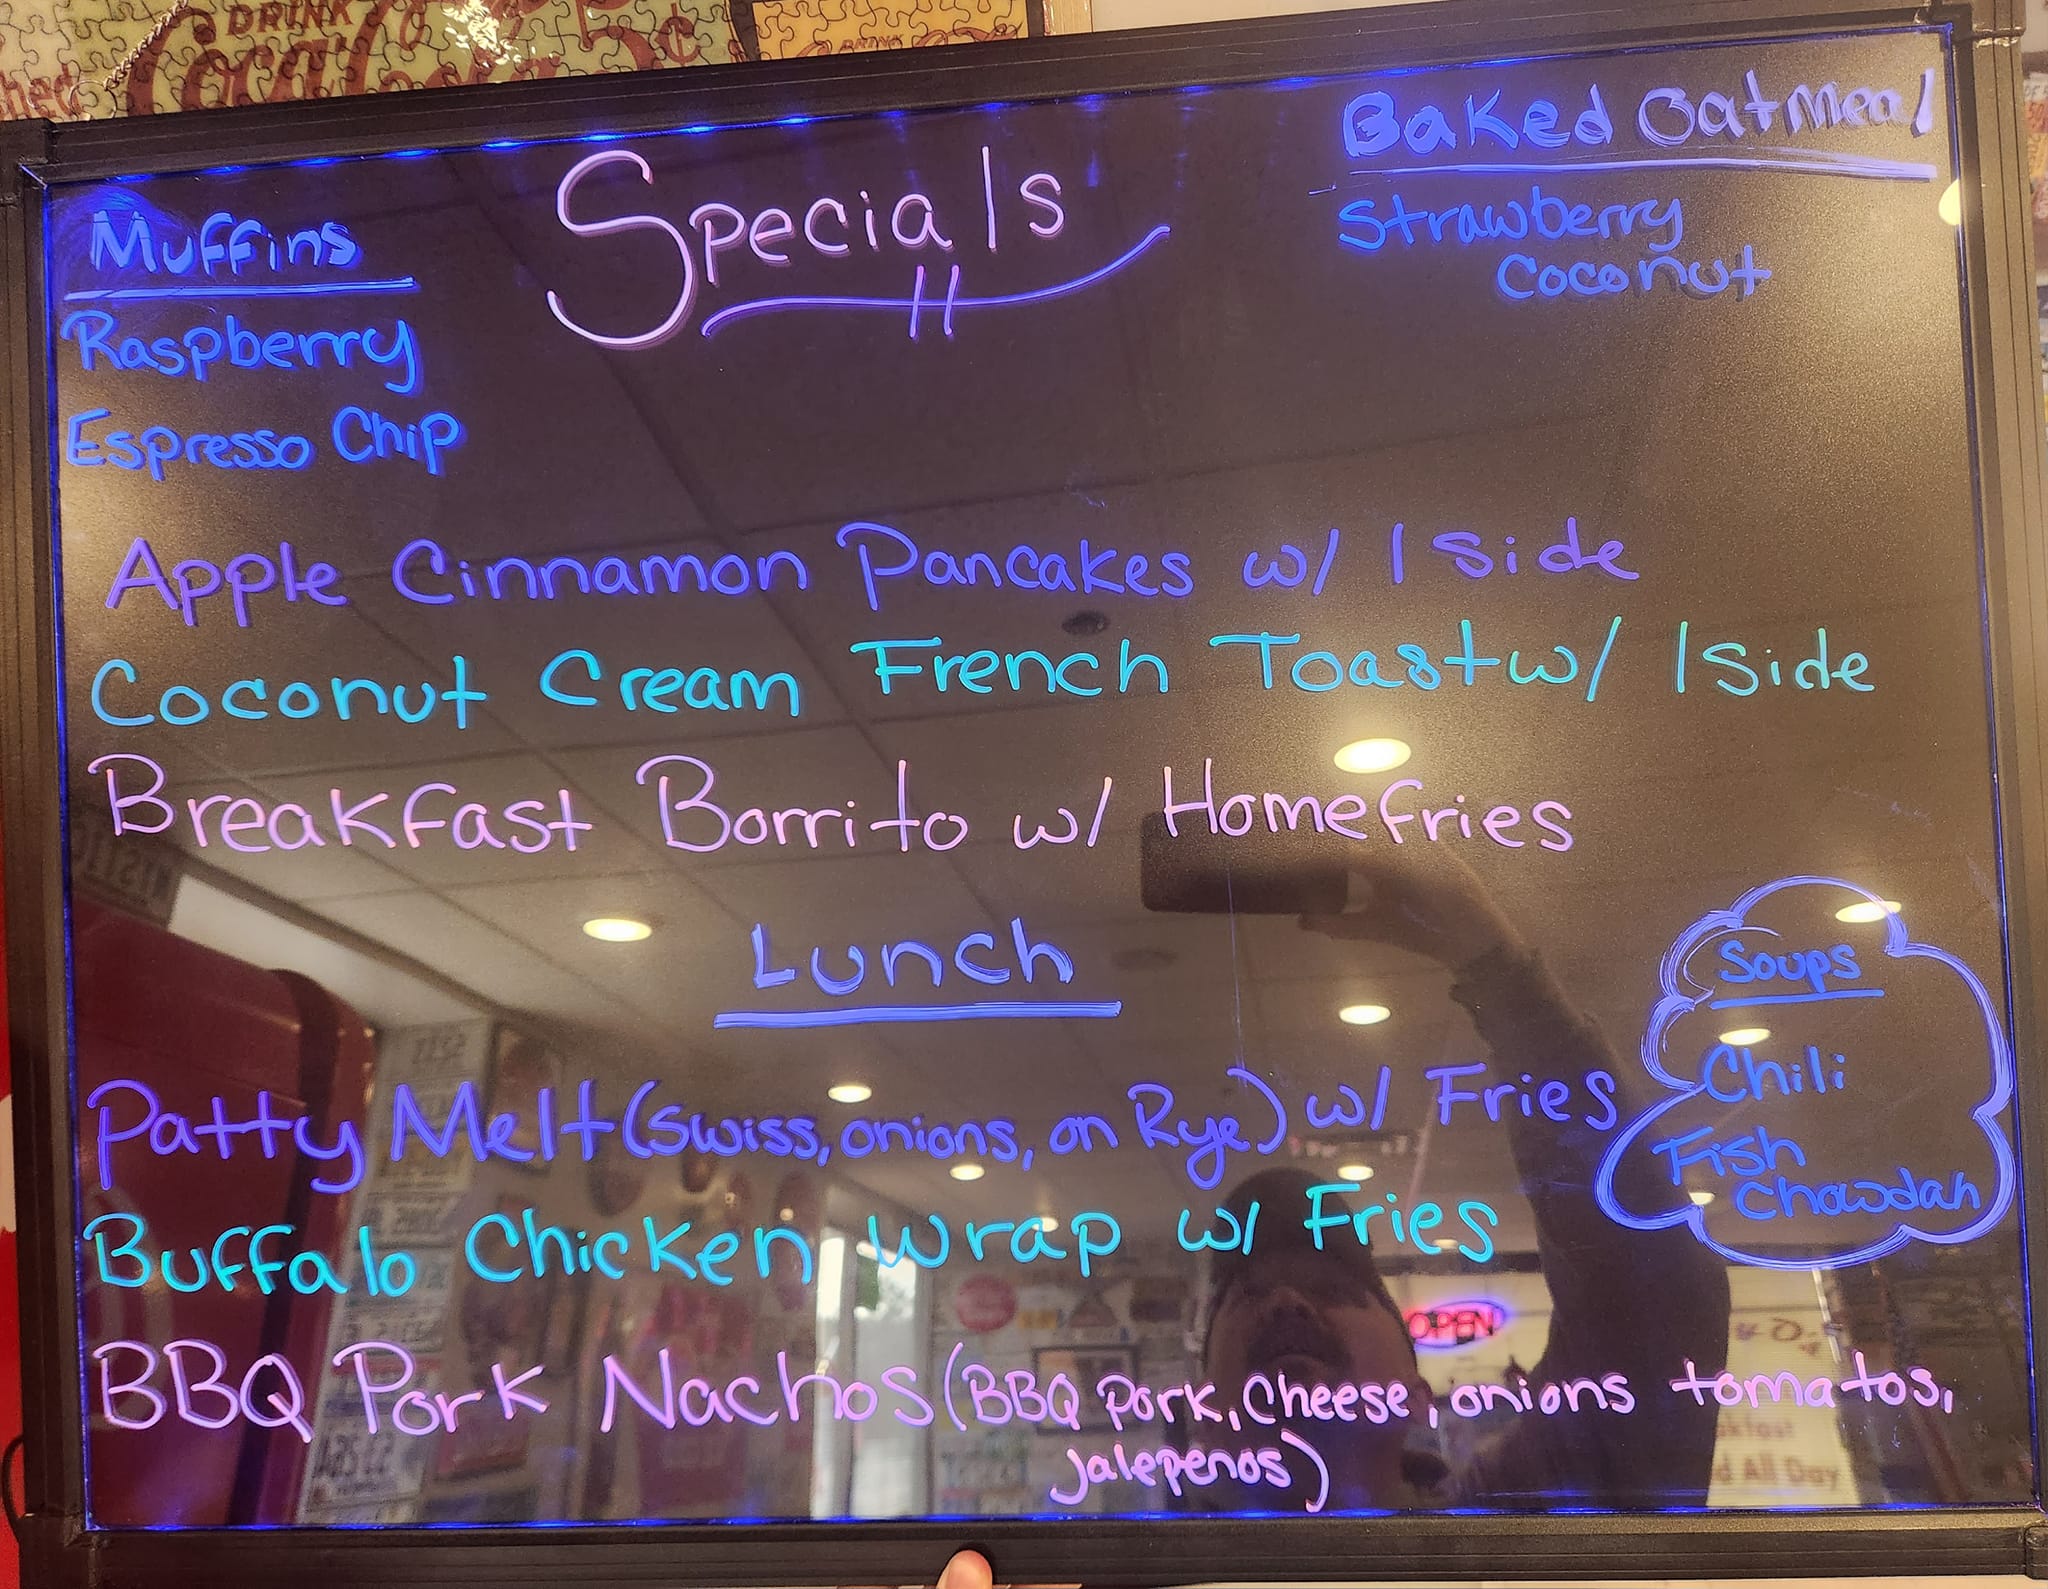 DRINK
Coca-Cola 5¢
DRINK
Specials
Baked Oatmeal
Strawberry
Coconut
Muffins
Raspberry
Espresso Chip
Apple Cinnamon Pancakes w/ 1 side
Coconut Cream French Toast w/ 1 side
Breakfast Borrito w/ Homefries
Lunch
Patty Melt (Swiss, onions, on Rye) w/ Fries
Buffalo Chicken Wrap w/ Fries
BBQ Pork Nachos (BBQ Pork, Cheese, onions tomatos,
jalepenos)
Soups
Chili
Fish
Chowdah
OPEN
All Day